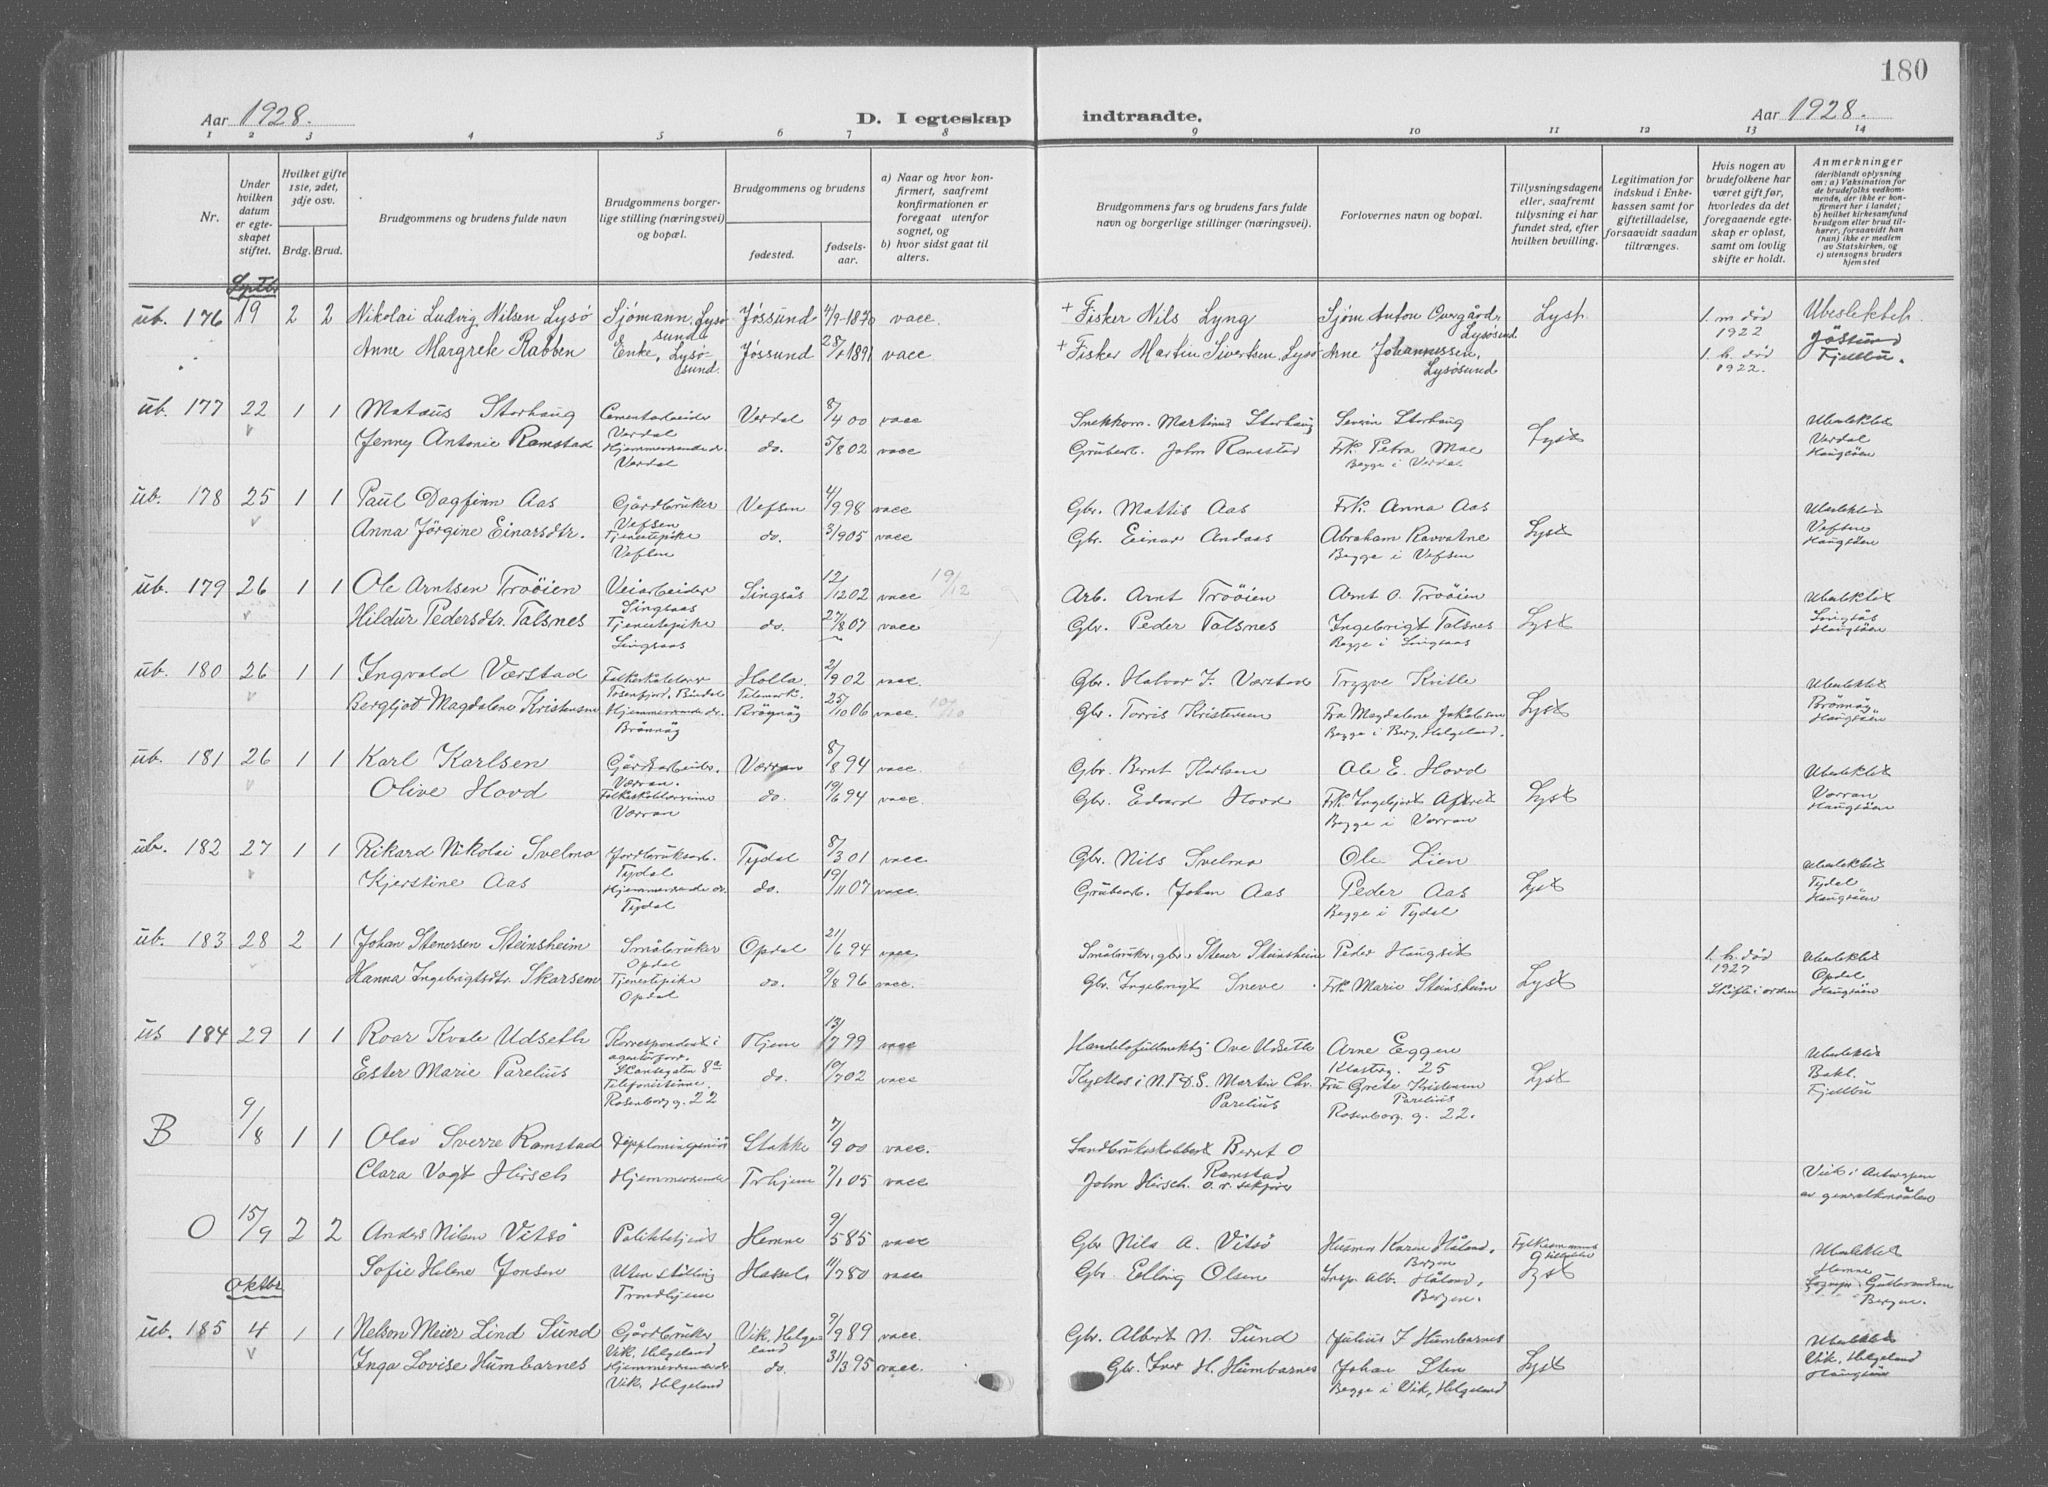 180
Aar 1928. D. I egteskap indtraadte. Aar 1928.
1 2 3 4 5 6 7 8 9 10 11 12 13 14
Nr.
Under hvilken datum er egteskapet stiftet.
Hvilket gifte 1ste, 2det, 3dje osv.
Brdg. Brud.
Brudgommens og brudens fulde navn
Brudgommens borgerlige stilling (næringsvei) og bopæl.
Brudgommens og brudens
fødested. fødselsaar.
a) Naar og hvor konfirmert, saafremt konfirmationen er foregaat utenfor sognet, og
b) hvor sidst gaat til alters.
Brudgommens fars og brudens fars fulde navn og borgerlige stillinger (næringsvei).
Forlovernes navn og bopæl.
Tillysningsdagene eller, saafremt tillysning ei har fundet sted, efter hvilken bevilling.
Legitimation for indskud i Enkekassen samt for giftetilladelse, forsaavidt saadan tiltrænges.
Hvis nogen av brudefolkene har været gift før, hvorledes da det foregaaende egteskap er opløst, samt om lovlig skifte er holdt.
Anmerkninger (deriblandt oplysning om: a) Vaksination for de brudefolks vedkommende, der ikke er konfirmert her i landet; b) hvilket kirkesamfund brudgom eller brud tilhører, forsaavidt han (hun) ikke er medlem av Statskirken, og c) utensogns bruders hjemsted
Septbr
ub. 176 19 2 2 Nikolai Ludvig Nilsen Lysø Sjømann, Lysøsund Jøssund 4/9-1870 vacc. + Fisker Nils Lyng Sjøm Anton Overgård, Lysøsund Lyst 1. m død 1922 Ubeslektet
Anne Margrete Rabben Enke, Lysøsund. Jøssund 1891 vacc + Fisker Martin Sivertsen, Lysø Arne Johannessen, Lysøsund 1. h. død 1922. Jøssund Fjellbu.
ub. 177 22 1 1 Mataus Storhaug Cementarbeider Verdal Verdal 8/4 00 vacc Snekkerm. Martinus Storhaug Severin Storhaug Lyst Ubeslektet
Jenny Antonie Ramstad Hjemmeværende dr. Verdal do. 5/8 02 vacc Grubearb. John Ramstad Frk. Petra Mae Begge i Verdal. Verdal Haugsøen
ub. 178 25 1 1 Paul Dagfinn Aas Gårdbruker Vefsen Vefsen 4/9 98 vacc Gbr. Mattis Aas Frk. Anna Aas Lyst Ubeslektet
Anna Jørgine Einarsdtr. Tjenestepike Vefsen do. 3/9 05 vacc Gbr. Einar Andaas Abraham Ravvatne Begge i Vefsen Vefsen Haugsøen
ub. 179 26 1 1 Ole Arntsen Trøøien Veiarbeider Singsaas Singsås 12/12 02 vacc 19/12 Arb. Arnt Trøøien Arnt O. Trøøien Lyst Ubeslektet
Hildur Pedersdtr. Talsnes Tjenestepike Singsaas do. 27/8 07 vacc Gbr. Peder Talsnes Ingebrigt Talsnes Begge i Singsaas Singsås Haugsøen
ub. 180 26 1 1 Ingvald Værstad Folkeskolelærer Tosenfjord, Bindal Holla Telemark. 2/9 02 vacc. Gbr. Halvor J. Værstad Trygve Kvitle Lyst Ubeslektet
Bergljot Magdalene Kristensen Hjemmeværende dr. Brønnøy Brønnøy 25/10 06 vacc. 10/10 Gbr. Torris Kristensen Fru Magdalene Jakobsen Begge i Berg, Helgeland. Brønnøy Haugsøen
ub. 181 26 1 1 Karl Karlsen Gårdsarbeider. Værran. Værran 8/8 94 vacc Gbr. Bernt Karlsen Ole E. Hovd Lyst Ubeslektet
Olive Hovd Folkeskolelærerinne Værran do. 19/6 94 vacc. Gbr. Edvard Hovd Frk. Ingebjørt Aftret Begge i Verran Værran Haugsøen
ub. 182 27 1 1 Rikard Nikolai Svelmo Jordbruksarb. Tydal Tydal 8/3 01 vacc Gbr. Nils Svelmo Ole Lien Lyst Ubeslektet
Kjerstine Aas Hjemmeværende dr. Tydal do. 19/11 07 vacc Grubearb. Johan Aas Peder Aas Begge i Tydal Tydal Haugsøen
ub. 183 28 2 1 Johan Stenersen Steinsheim Småbruker Opdal Opdal 21/6 94 vacc. Småbruker, gbr. Stener Steinsheim Peder Haugset Lyst 1. h. død 1927 Skifte i orden Ubeslektet
Hanna Ingebrigtsdtr. Skarsem Tjenestepike Opdal do. 9/8 96 vacc. Gbr. Ingebrigt Sneve Frk. Marie Steinsheim Opdal Haugsøen
us 184 29 1 1 Roar Kvale Udseth Korrespondent i agenturforr. Skansegaten 8a Thjem 13/7 99 vacc Handelsfullmektig Ove Udseth Arne Eggen Klosterg. 25 Lyst Ubeslektet
Ester Marie Parelius Telefonistinne. Rosenborg g. 22 do. 10/7 02 vacc Kystlos i N.F.D.S. Martin Chr. Parelius Fru Grete Kristensen Parelius Rosenborg. g. 22. Bakl. Fjellbu
B 9/8 1 1 Olav Sverre Ramstad Diplomingeniør Stokke 7/9 00 vacc. Landbrukskabbert Bernt O Ramstad
Clara Vogt Hirsch Hjemmeværende Trhjem 7/1 05 vacc John Hirsch. o. r. sakfører Viet i Antwerpen av generalkonsulen
O 15/9 2 2 Anders Nilsen Vitsø Politibetjent Hemne 9/5 85 vacc Gbr Nils A. Vitsø Husmor Karen Håland, Bergen Lyst Ubeslektet
Sofie Helene Jonsen Uten stilling Trondhjem Hassel 11/7 80 vacc Gbr. Elling Olsen Insp. Alb. Håland, Bergen. Hemne Sognepr. Guttormsen Bergen.
Oktbr
ub. 185 4 1 1 Nelson Meier Lind Sund Gårdbruker Vik, Helgeland Vik, Helgeland 9/9 89 vacc. Gbr. Albert N. Sund Julius J Humbornes Lyst Ubeslektet
Inga Lovise Humbornes Hjemmeværende dr. Vik, Helgeland do. 31/3 95 vacc. Gbr. Iver H. Humbornes Johan Sten Begge i Vik, Helgeland Vik, Helgeland Haugsøen